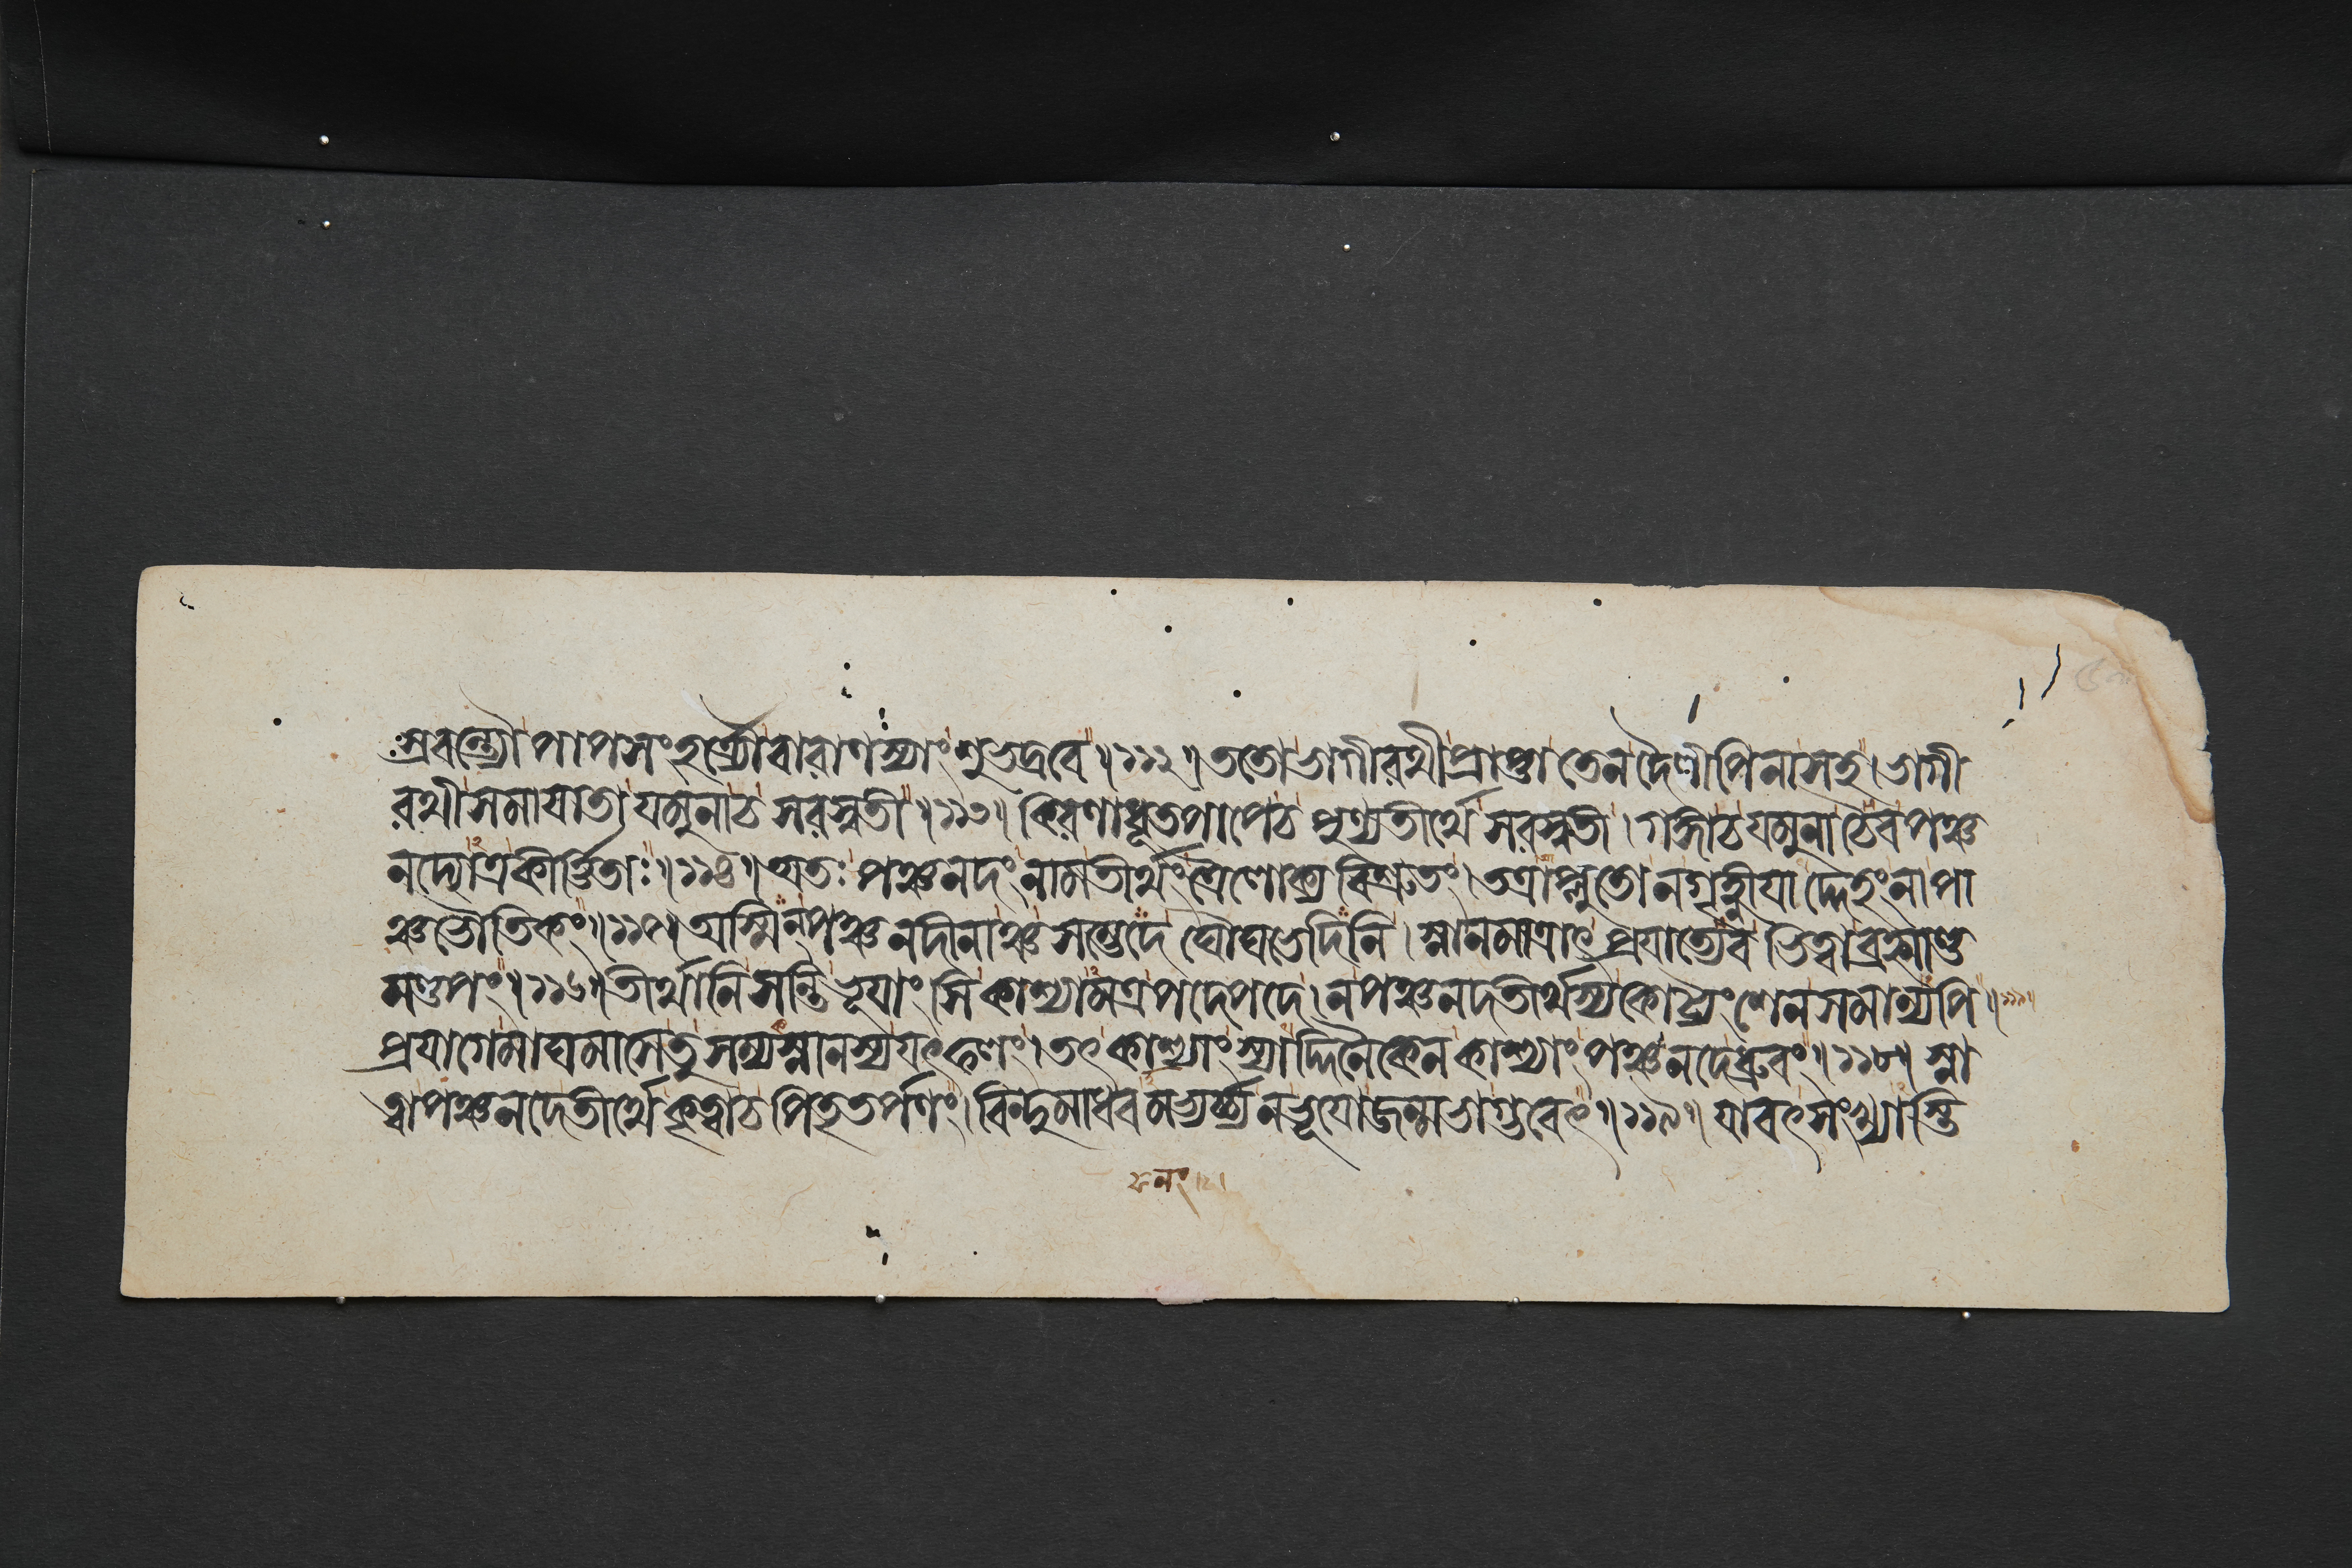 স্রবন্ত্যৌপাপসংহর্ত্র্যৌবারাণস্যাংশুভদ্রবে॥১১২॥ততোভাগীরথীপ্রাপ্তাতেনদৈলীপিনাসহ।ভাগী
রথীসমাযাতাযমুনাচসরস্বতী॥১১৩॥কিরণাধূতপাপেচপুণ্যতীর্থেসরস্বতী।গঙ্গাচযমুনাচৈবপঞ্চ
নদ্যোত্রকীর্ত্তিতাঃ॥১১৪॥অতঃপঞ্চনদংনামতীর্থংত্রৈলোক্যবিশ্রুতং।তত্রাপ্লুতোনগৃহ্ণীযাদ্দেহংনাপা
ঞ্চভৌতিকং॥১১৫॥অস্মিন্পঞ্চনদীনাঞ্চসম্ভেদেঘৌঘভেদিনি।স্নানমাত্রাৎপ্রযাত্যেবভিত্বাব্রহ্মাণ্ড
মণ্ডপং॥১১৬॥তীর্থানিসন্তিভূযাংসিকাশ্যামত্রপদেপদে।নপঞ্চনদতীর্থস্যকোট্যংশেনসমান্যপি॥১১৭॥
প্রযাগেমাঘমাসেতুসম্যস্নানস্যযৎফলং।তৎকাশ্যাংস্যাদ্দিনৈকেনকাশ্যাংপঞ্চনদেধ্রুবং॥১১৮॥স্না
ত্বাপঞ্চনদেতীর্থেকৃত্বাচপিতৃতর্পণং।বিন্দুমাধবমভ্যর্চ্চ্যনভূযোজন্মভাগ্ভবেৎ॥১১৯॥যাবৎসংখ্যাস্তি